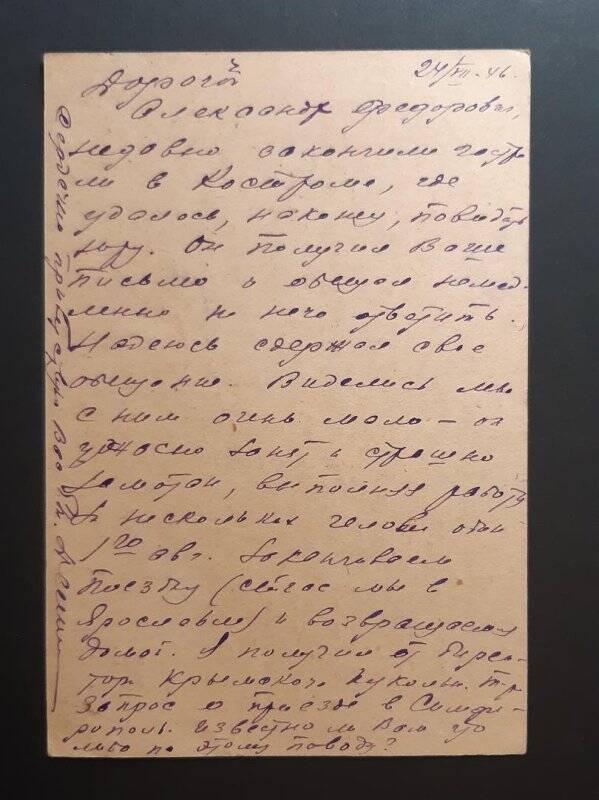 24/VII-46
Дорогой
Александр Федорович,
недавно закончили гастро
ли в Костроме, где
удалось, нахожу, повидать
Он получил Ваше
письмо и обещал немед-
ленно на него ответить.
Надеюсь сдержал свое
обещание. Виделись мы
с ним очень мало – он
ужасно занят и страшно
замотан, выполняя работу
за нескольких человек один
1го авг. заканчиваем
поездку (сейчас мы в
Ярославле) и возвращаемся
домой. Я получил от дирек-
тора Крымского кукольн. т-ра
запрос о приезде в Симфе-
рополь. Известно ли Вам что
либо по этому поводу?
Сердечно приветствую Вас